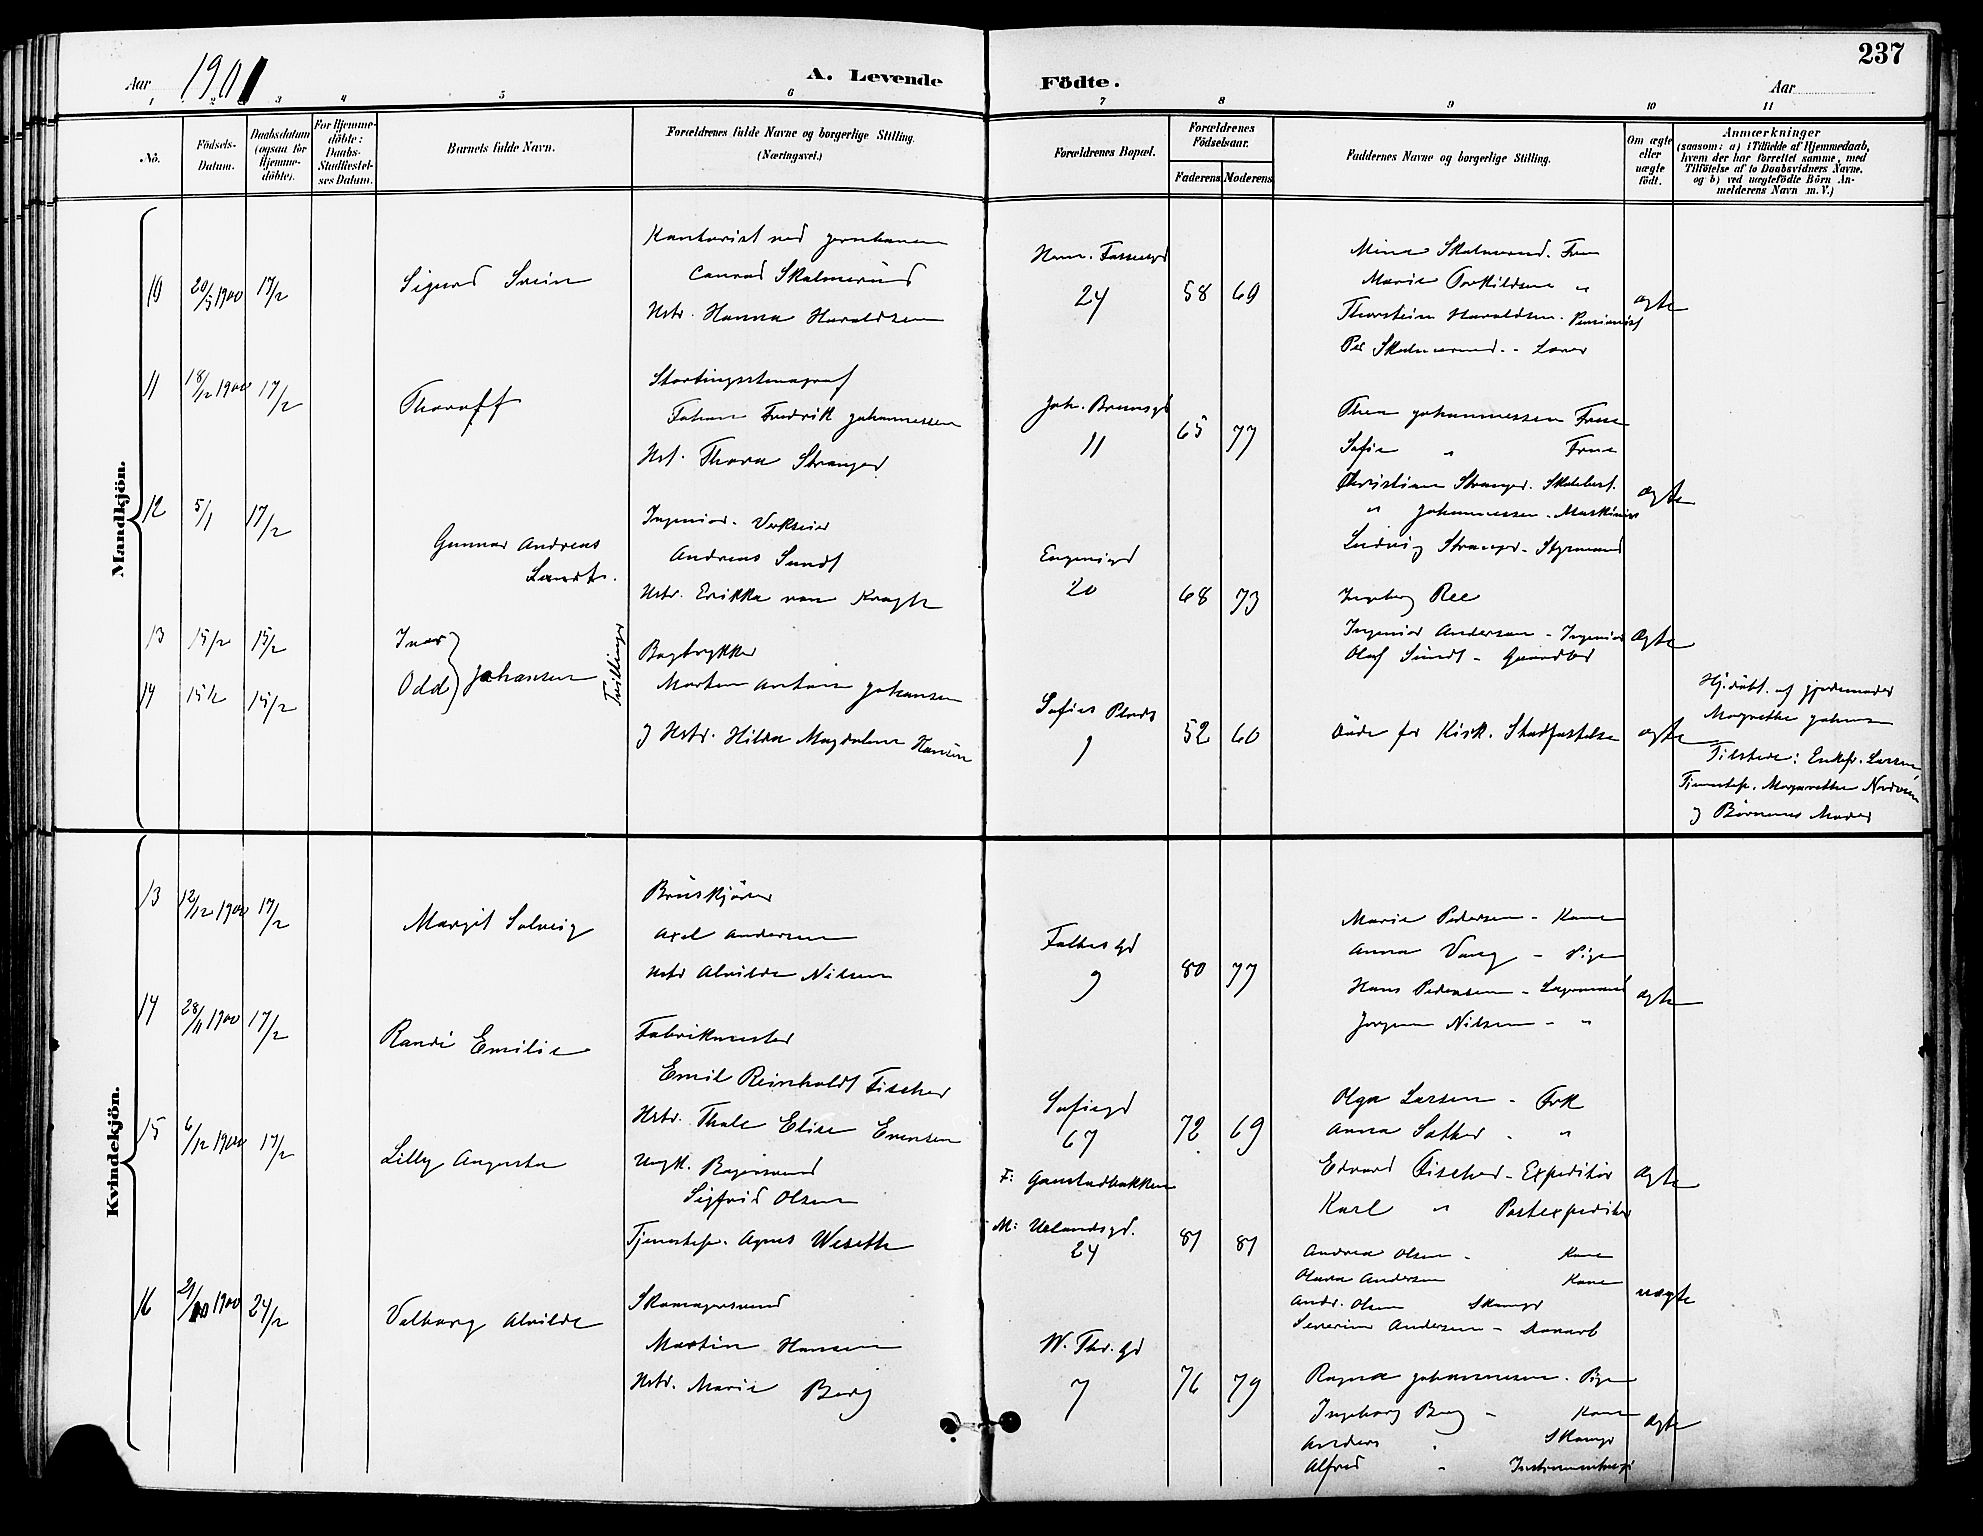 Aar 1901
A. Levende
Födte.
Aar
237
1 2 3 4 5 6 7 8 9 10 11
Nô.
Födsels-Datum.
Daabsdatum (ogsaa for Hjemme-döbte).
For Hjemme-döbte: Daabs-Stadfæstel-ses Datum.
Barnets fulde Navn.
Forældrenes fulde Navne og borgerlige Stilling.
(Næringsvei.)
Forældrenes Bopæl.
Forældrenes Födselsaar.
Faderens
Moderens
Faddernes Navne og borgerlige Stilling.
Om ægte eller uægte födt.
Anmærkninger
(saasom: a) i Tilfælde af Hjemmedaab,
hvem der har forrettet samme, med
Tilföielse af to Daabsvidners Navne.
og b) ved uægtefödte Börn An-
melderens Navn m. V.)
Mandkjön.
10 20/5 1900 17/2
Sigurd Svein
Kontorist ved Jernbanen
Conrad Skalmerud
Hstr. Hanna Haraldsen
24
58 69
Mina Skalmerud. Frue
Marie Torkildsen "
Thorstein Haraldsen. Pensionist
Per Skalmerud
ægte
11 18/12 1900 17/2
Thoralf
Stortingsstenograf
Johan Fredrik Johannessen
Hst. Thora Stranger
Joh. Brunsgd
11
65 77
Thea Johannessen Frue
Sofie " Frue
Christian Stranger.
" Johannessen. Maskinist
Ludvig Stranger - Styrmand
ægte
12 5/1 17/2
Gunnar Andreas
Sundt.
Ingeniør. Verkseier
Andreas Sundt
Hstr. Erikka von Kragh
Eugeniegd
20
68 73
Ingeborg Ree
Ingeniør Andersen - Ingeniør
Olaf Sundt - Grosserer
ægte
13 15/2 15/2
Ivar
14 15/2 15/2
Odd
Johansen
Tvillinger
Bogtrykker
Morten Anton Johansen
og Hstr. Hilda Magdalene Hansen
Sofies Plads
52 60
Døde før Kirk. Stadfæstelse
ægte
Hj.døbt. af Jordemoder
Margrethe Johnsen
Tilstede: Enkefr. Larsen
Tjenestep. Margarethe
og Børnenes Moder
Kvindekjön.
13 12/12 1900 17/2
Margit Solveig
Bruskjører
Axel Andersen
Hstr Alvilde Nilsen
Falbesgd
9
80 77
Marie Pedersen - Kone
Anna Vang - Pige
Hans Pedersen - Lagermand
Jørgen Nilsen - "
ægte
14 28/11 1900 17/2
Randi Emilie
Fabrikmester
Emil Reinholdt Fischer
Hstr. Thale Elise Evensen
Sofiegd
67
72 69
Olga Larsen - Frk
Anna Sæther - "
Edvard Fischer - Expeditør
Karl " Postexpeditør
ægte
15 6/12 1900 17/2
Lilly Augusta
Ungk. Bagersvend
Sigfrid Olsen
Tjenestep. Agnes Weseth
F: Gaustadbakken
M: Uelandsgd.
24
81 81
Andrea Olsen - Kone
Olava Andersen Kone
Andr. Olsen Skomgr
Severin Andersen -
uægte
16 21/10 1900 24/2
Valborg Alvilde
Skomagersvend
Martin Hansen
Hstr. Marie Berg
W. Thr. gd
7
76 79
Ragna Johannesen. Pige
Ingeborg Berg - Kone
Anders " Skomgr
Alfred " Instrumentmgr
ægte